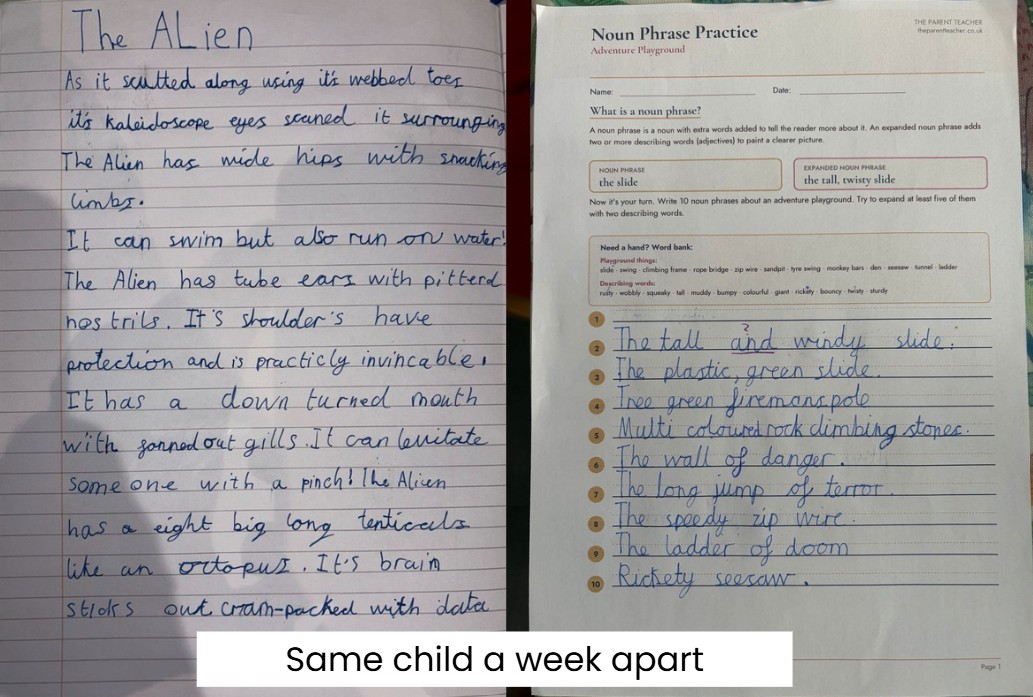 The ALien
As it scutted along using it's webbed toes
it's kaleidoscope eyes scaned it surrounging
The Alien has wide hips with snacking
limbs.
It can swim but also run on water!
The Alien has tube ears with pitterd
nostrils. It's shoulder's have
protection and is practicly invincable.
It has a down turned mouth
with fanned out gills. It can levitate
someone with a pinch! The Alien
has a eight big long tenticals
like an octopus. It's brain
sticks out cram-packed with data
THE PARENT TEACHER
theparentteacher.co.uk
Noun Phrase Practice
Adventure Playground
Name:
Date:
What is a noun phrase?
A noun phrase is a noun with extra words added to tell the reader more about it. An expanded noun phrase adds
two or more describing words (adjectives) to paint a clearer picture.
NOUN PHRASE
the slide
EXPANDED NOUN PHRASE
the tall, twisty slide
Now it's your turn. Write 10 noun phrases about an adventure playground. Try to expand at least five of them
with two describing words.
Need a hand? Word bank:
Playground things:
slide · swing · climbing frame · rope bridge · zip wire · sandpit · tyre swing · monkey bars · den · seesaw · tunnel · ladder
Describing words:
rusty · wobbly · squeaky · tall · muddy · bumpy · colourful · giant · rickety · bouncy · twisty · sturdy
1
?
2 The tall and windy slide.
3 The plastic, green slide.
4 Tree green firemans pole
5 Multi coloured rock climbing stones.
6 The wall of danger.
7 The long jump of terror.
8 The speedy zip wire.
9 The ladder of doom
10 Rickety seesaw.
Page 1
Same child a week apart